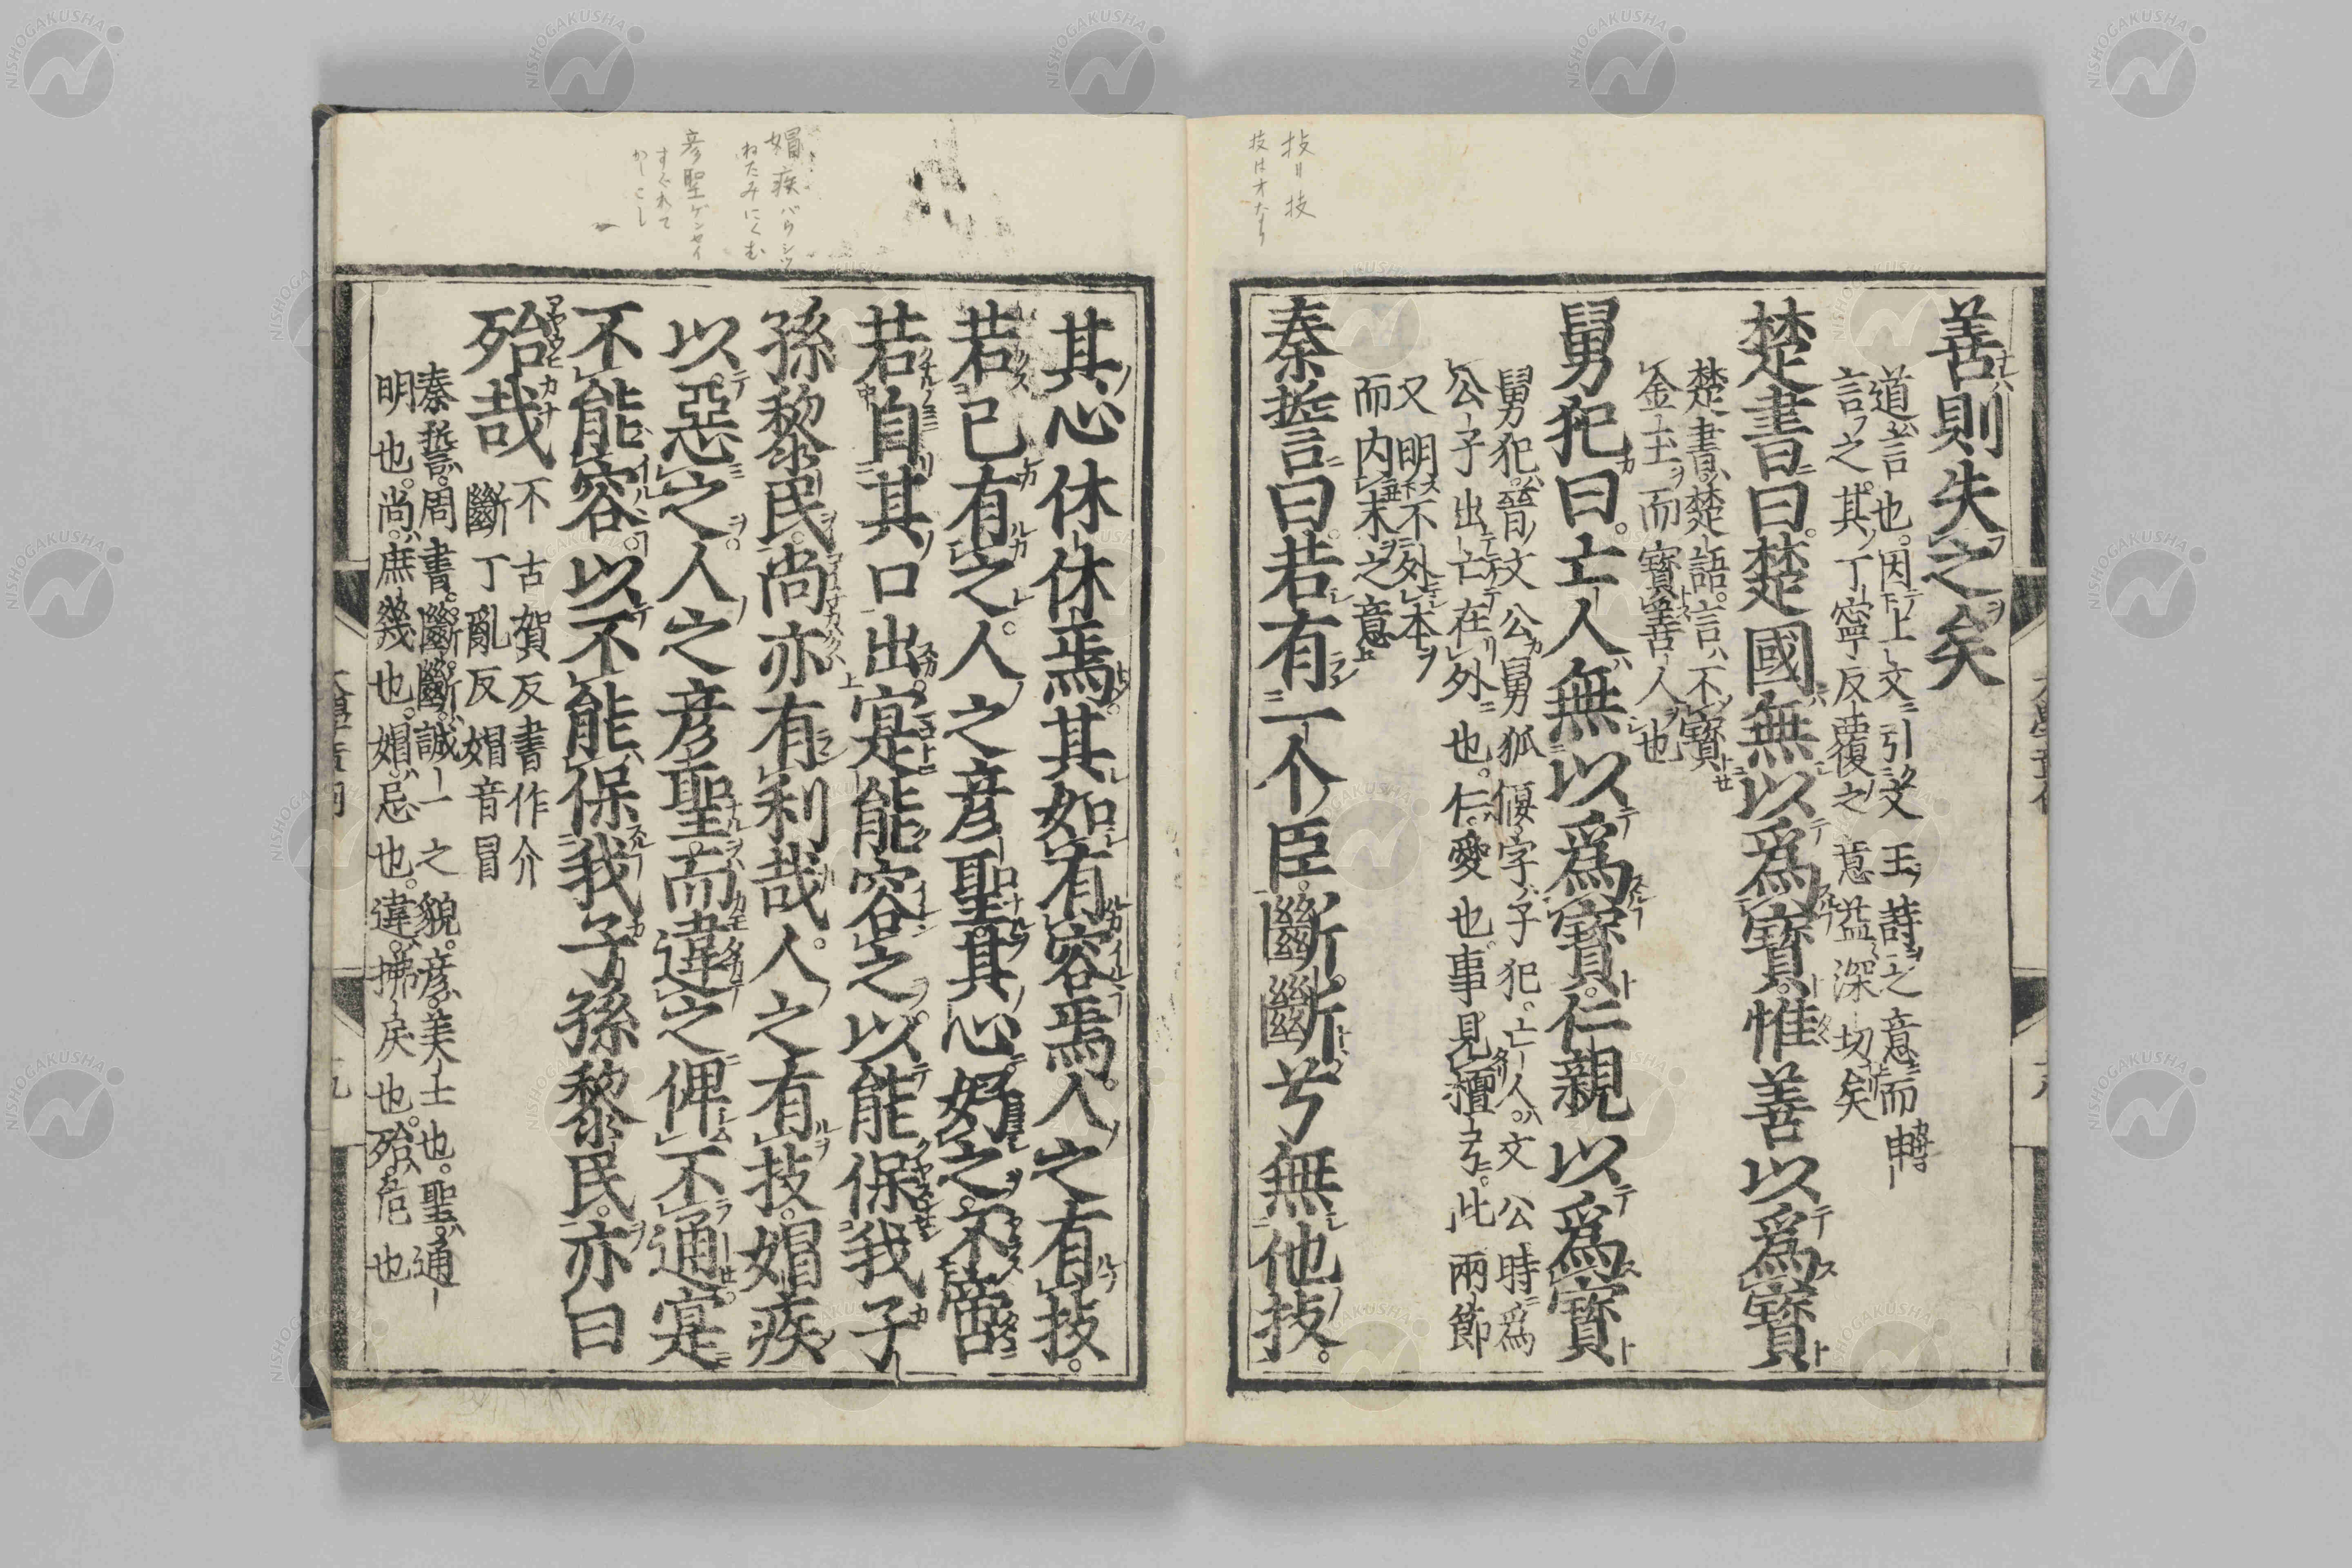 善則失之矣
道言也因上文引文王詩之意而申
言之其丁寧反覆之意益深切矣
楚書曰楚國無以爲寶惟善以爲寶
楚書楚語言不寶
金玉而寶善人也
舅犯曰亡人無以爲寶仁親以爲寶
舅犯晉文公舅狐偃字子犯亡人文公時爲
公子出亡在外也仁愛也事見檀弓此兩節
又明不外本
而内末之意
秦誓曰若有一个臣斷斷兮無他技
其心休休焉其如有容焉人之有技
若己有之人之彦聖其心好之不啻
若自其口出寔能容之以能保我子
孫黎民尚亦有利哉人之有技媢疾
以惡之人之彦聖而違之俾不通寔
不能容以不能保我子孫黎民亦曰
殆哉
不古賀反書作介
斷丁亂反媢音冒
秦誓周書斷斷誠一之貌彦美士也聖通
明也尚庶幾也媢忌也違拂戾也殆危也
媢疾
ねたみにくむ
彦聖ゲンセイ
すぐれて
かしこし
NISHOGAKUSHA